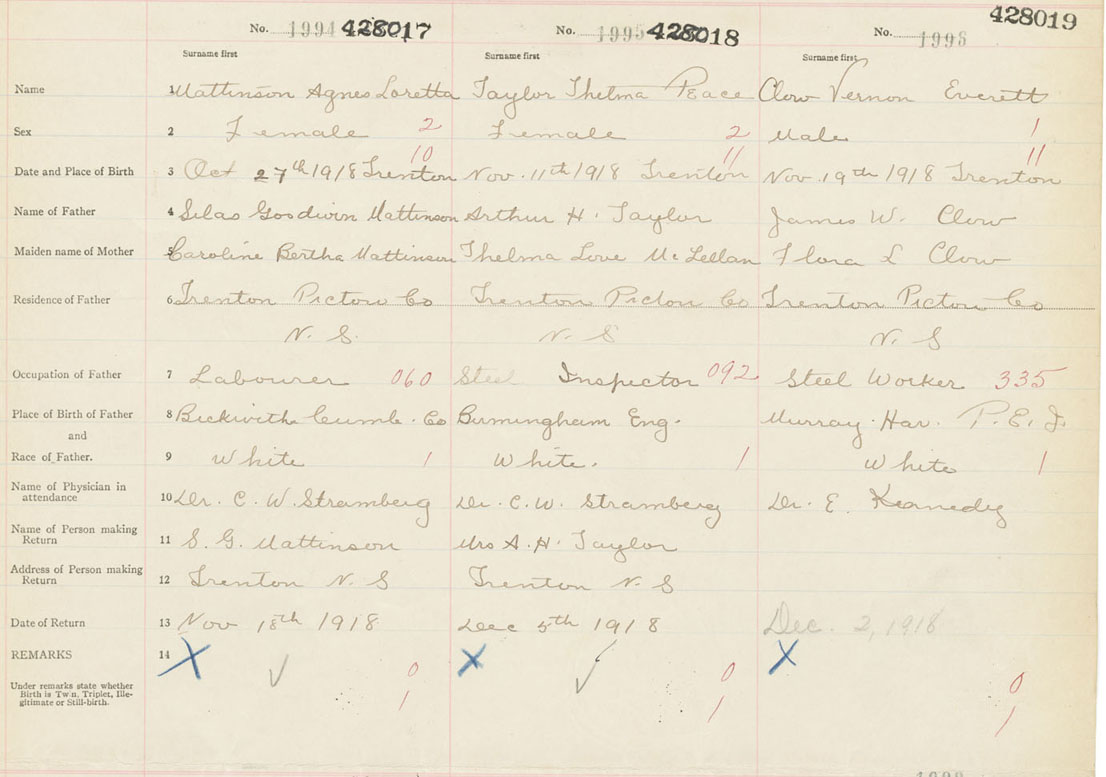 No. 1994 428017 No. 1995 428018 No. 1996 428019
Surname first Surname first Surname first
Name 1 Mattinson Agnes Loretta Taylor Thelma Peace Clow Vernon Everett
Sex 2 Female 2 Female 2 Male 1
10 11 11
Date and Place of Birth 3 Oct 27th 1918 Trenton Nov. 11th 1918 Trenton Nov. 19th 1918 Trenton
Name of Father 4 Silas Goodwin Mattinson Arthur H. Taylor James W. Clow
Maiden name of Mother 5 Caroline Bertha Mattinson Thelma Love McLellan Flora L Clow
Residence of Father 6 Trenton Pictou Co Trenton Pictou Co Trenton Pictou Co
N. S. N. S N. S
Occupation of Father 7 Labourer 060 Steel Inspector 092 Steel Worker 335
Place of Birth of Father 8 Beckwith Cumb. Co Birmingham Eng. Murray Har. P.E.I.
and
Race of Father. 9 White 1 White. 1 White 1
Name of Physician in
attendance 10 Dr. C. W. Stramberg Dr. C. W. Stramberg Dr. E. Kennedy
Name of Person making
Return 11 S. G. Mattinson Mrs A. H. Taylor
Address of Person making
Return 12 Trenton N. S Trenton N. S
Date of Return 13 Nov 18th 1918 Dec 5th 1918 Dec. 2, 1918
REMARKS 14 X X X
0 0 0
Under remarks state whether
Birth is Twin, Triplet, Ille-
gitimate or Still-birth.
1 1 1